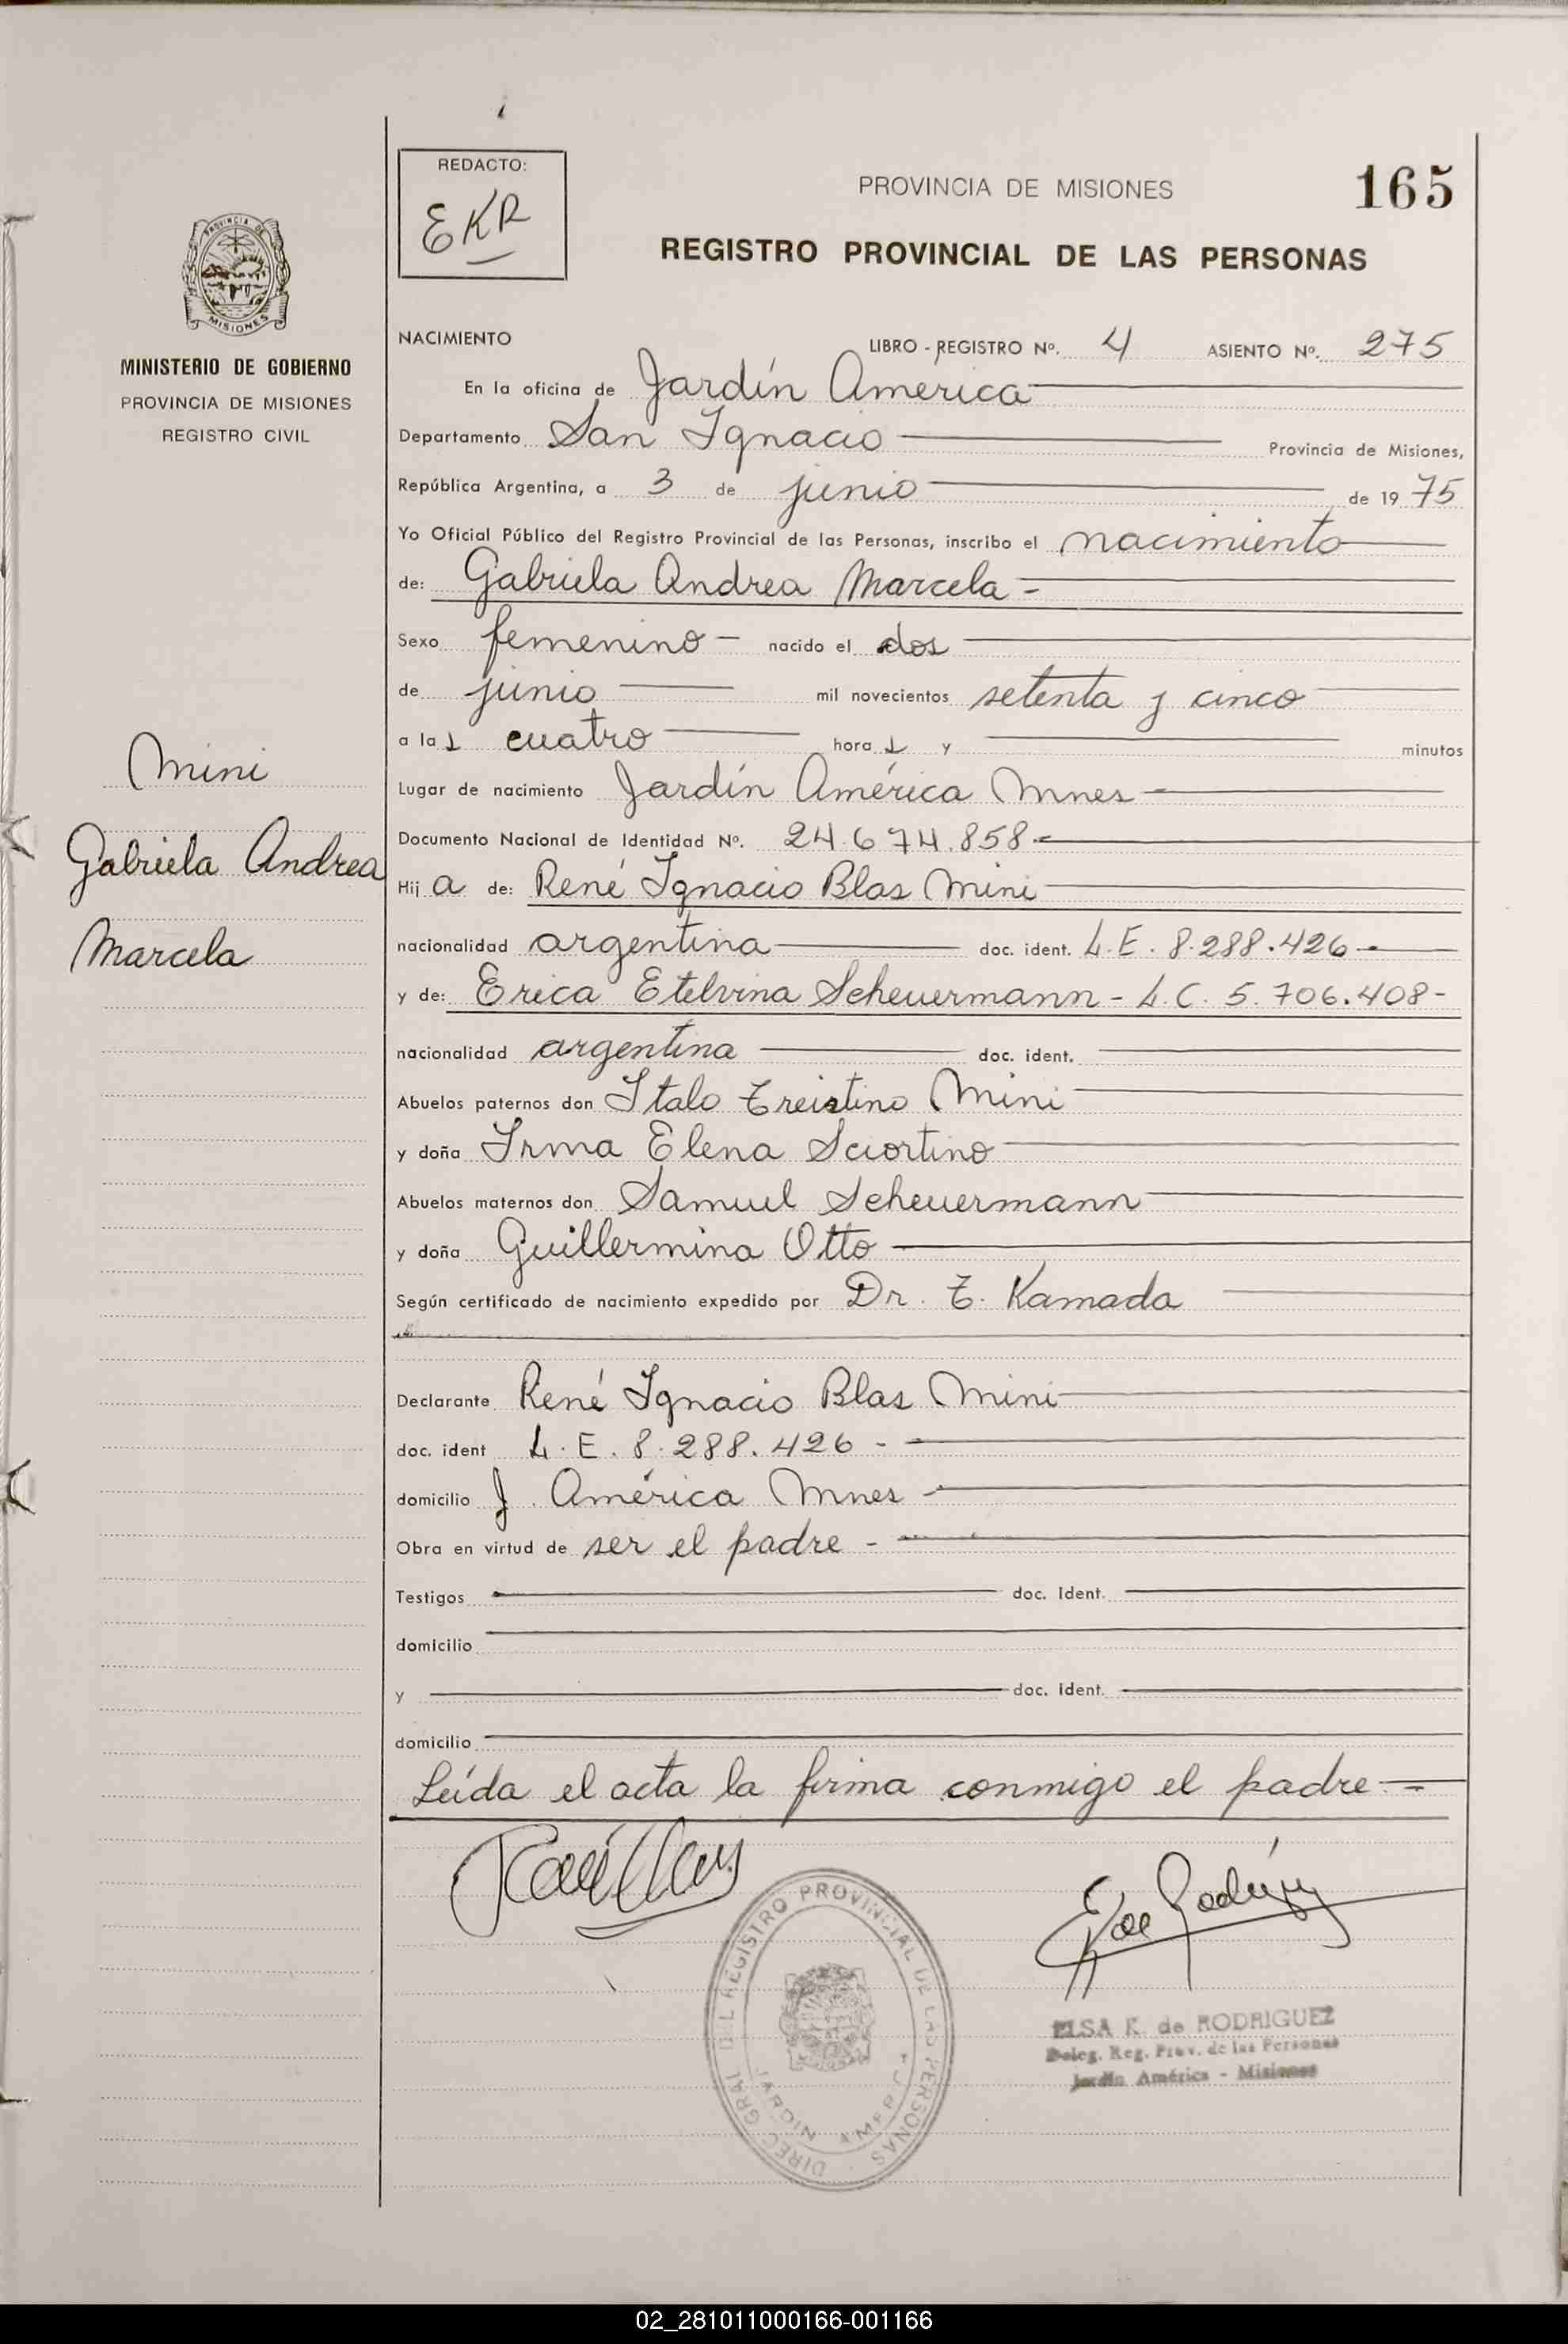 REDACTO:
EKR
PROVINCIA DE MISIONES
165
REGISTRO PROVINCIAL DE LAS PERSONAS
PROVINCIA DE
MISIONES
MINISTERIO DE GOBIERNO
PROVINCIA DE MISIONES
REGISTRO CIVIL
Mini
Gabriela Andrea
Marcela
NACIMIENTO LIBRO - REGISTRO Nº. 4 ASIENTO Nº. 275
En la oficina de Jardín América
Departamento San Ignacio Provincia de Misiones,
República Argentina, a 3 de junio de 1975
Yo Oficial Público del Registro Provincial de las Personas, inscribo el nacimiento
de: Gabriela Andrea Marcela -
Sexo femenino - nacido el dos
de junio mil novecientos setenta y cinco
a las cuatro horas y minutos
Lugar de nacimiento Jardín América Mnes -
Documento Nacional de Identidad Nº. 24.674.858.-
Hija de: René Ignacio Blas Mini
nacionalidad argentina doc. ident. L.E. 8.288.426.-
y de: Erica Etelvina Scheuermann - L.C. 5.706.408-
nacionalidad argentina doc. ident.
Abuelos paternos don Italo Mini
y doña Irma Elena Sciortino
Abuelos maternos don Samuel Scheuermann
y doña Guillermina Otto
Según certificado de nacimiento expedido por Dr. Kamada
Declarante René Ignacio Blas Mini
doc. ident L.E. 8.288.426 -
domicilio J. América Mnes -
Obra en virtud de ser el padre -
Testigos doc. Ident.
domicilio
y doc. Ident.
domicilio
Leída el acta la firma conmigo el padre -
DIREC. GRAL DEL REGISTRO PROVINCIAL DE LAS PERSONAS
JARDIN AMERICA
ELSA K. de RODRIGUEZ
Deleg. Reg. Prov. de las Personas
Jardín América - Misiones
02_281011000166-001166